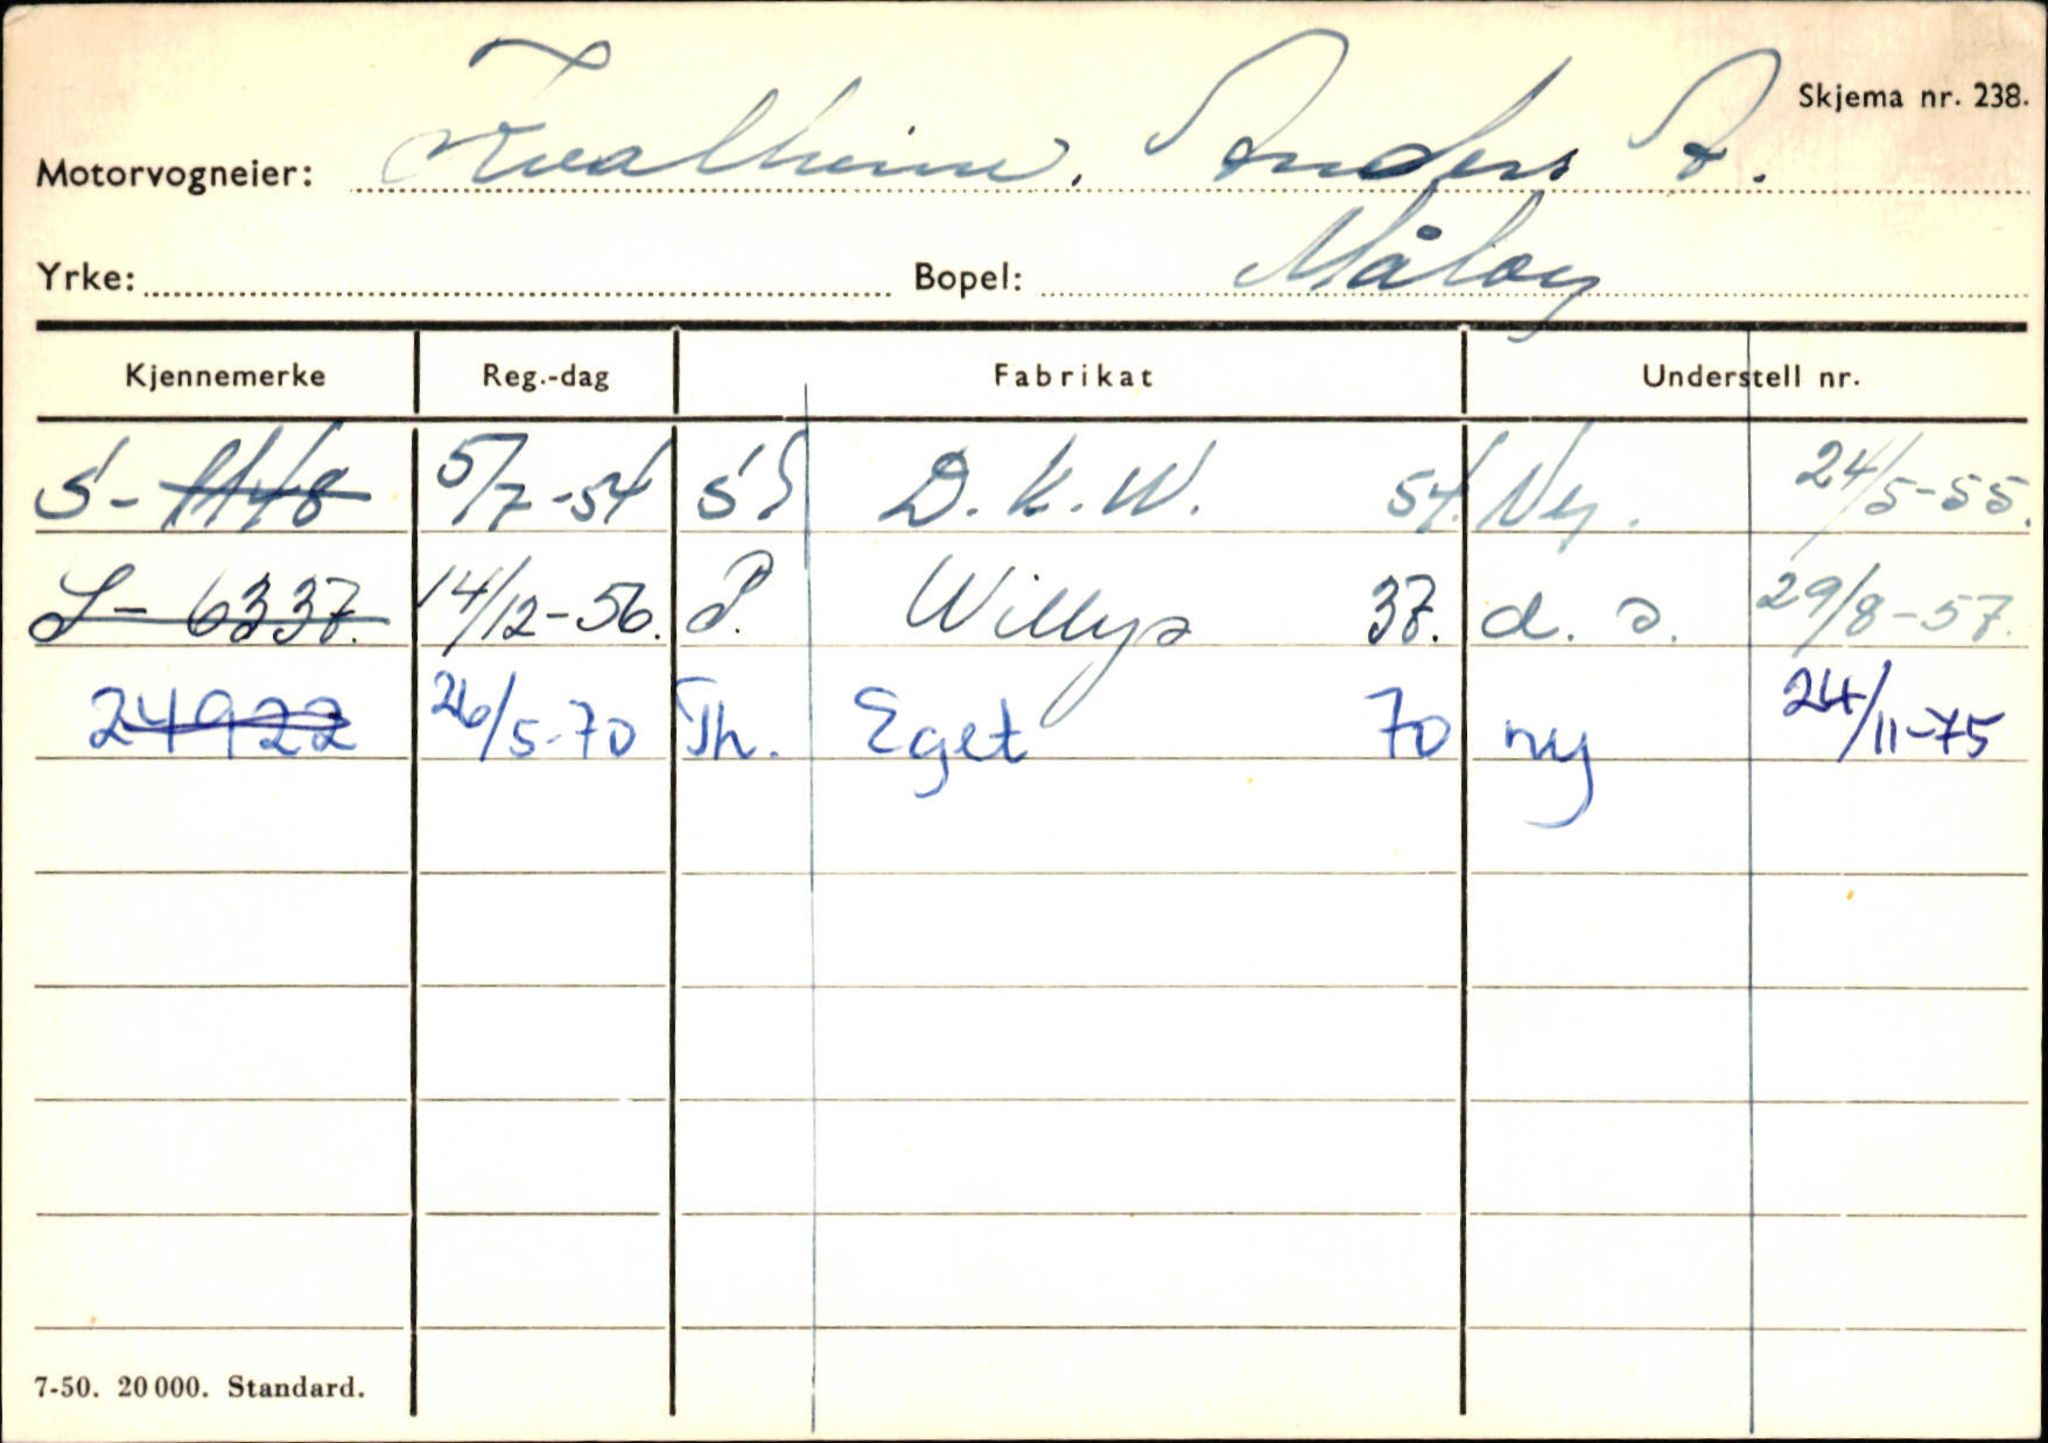 Skjema nr. 238.
Motorvogneier: Kvalheim, Anders A.
Yrke: Bopel: Måløy
Kjennemerke Reg.-dag Fabrikat Understell nr.
S- 1148 5/7-54 D.K.W. 54. Ny. 24/5-55.
S- 6337. 14/12-56. P. Willys 37. d. s. 29/8-57.
24922 26/5-70 Th. Eget 70 ny 24/11-75
7-50. 20 000. Standard.